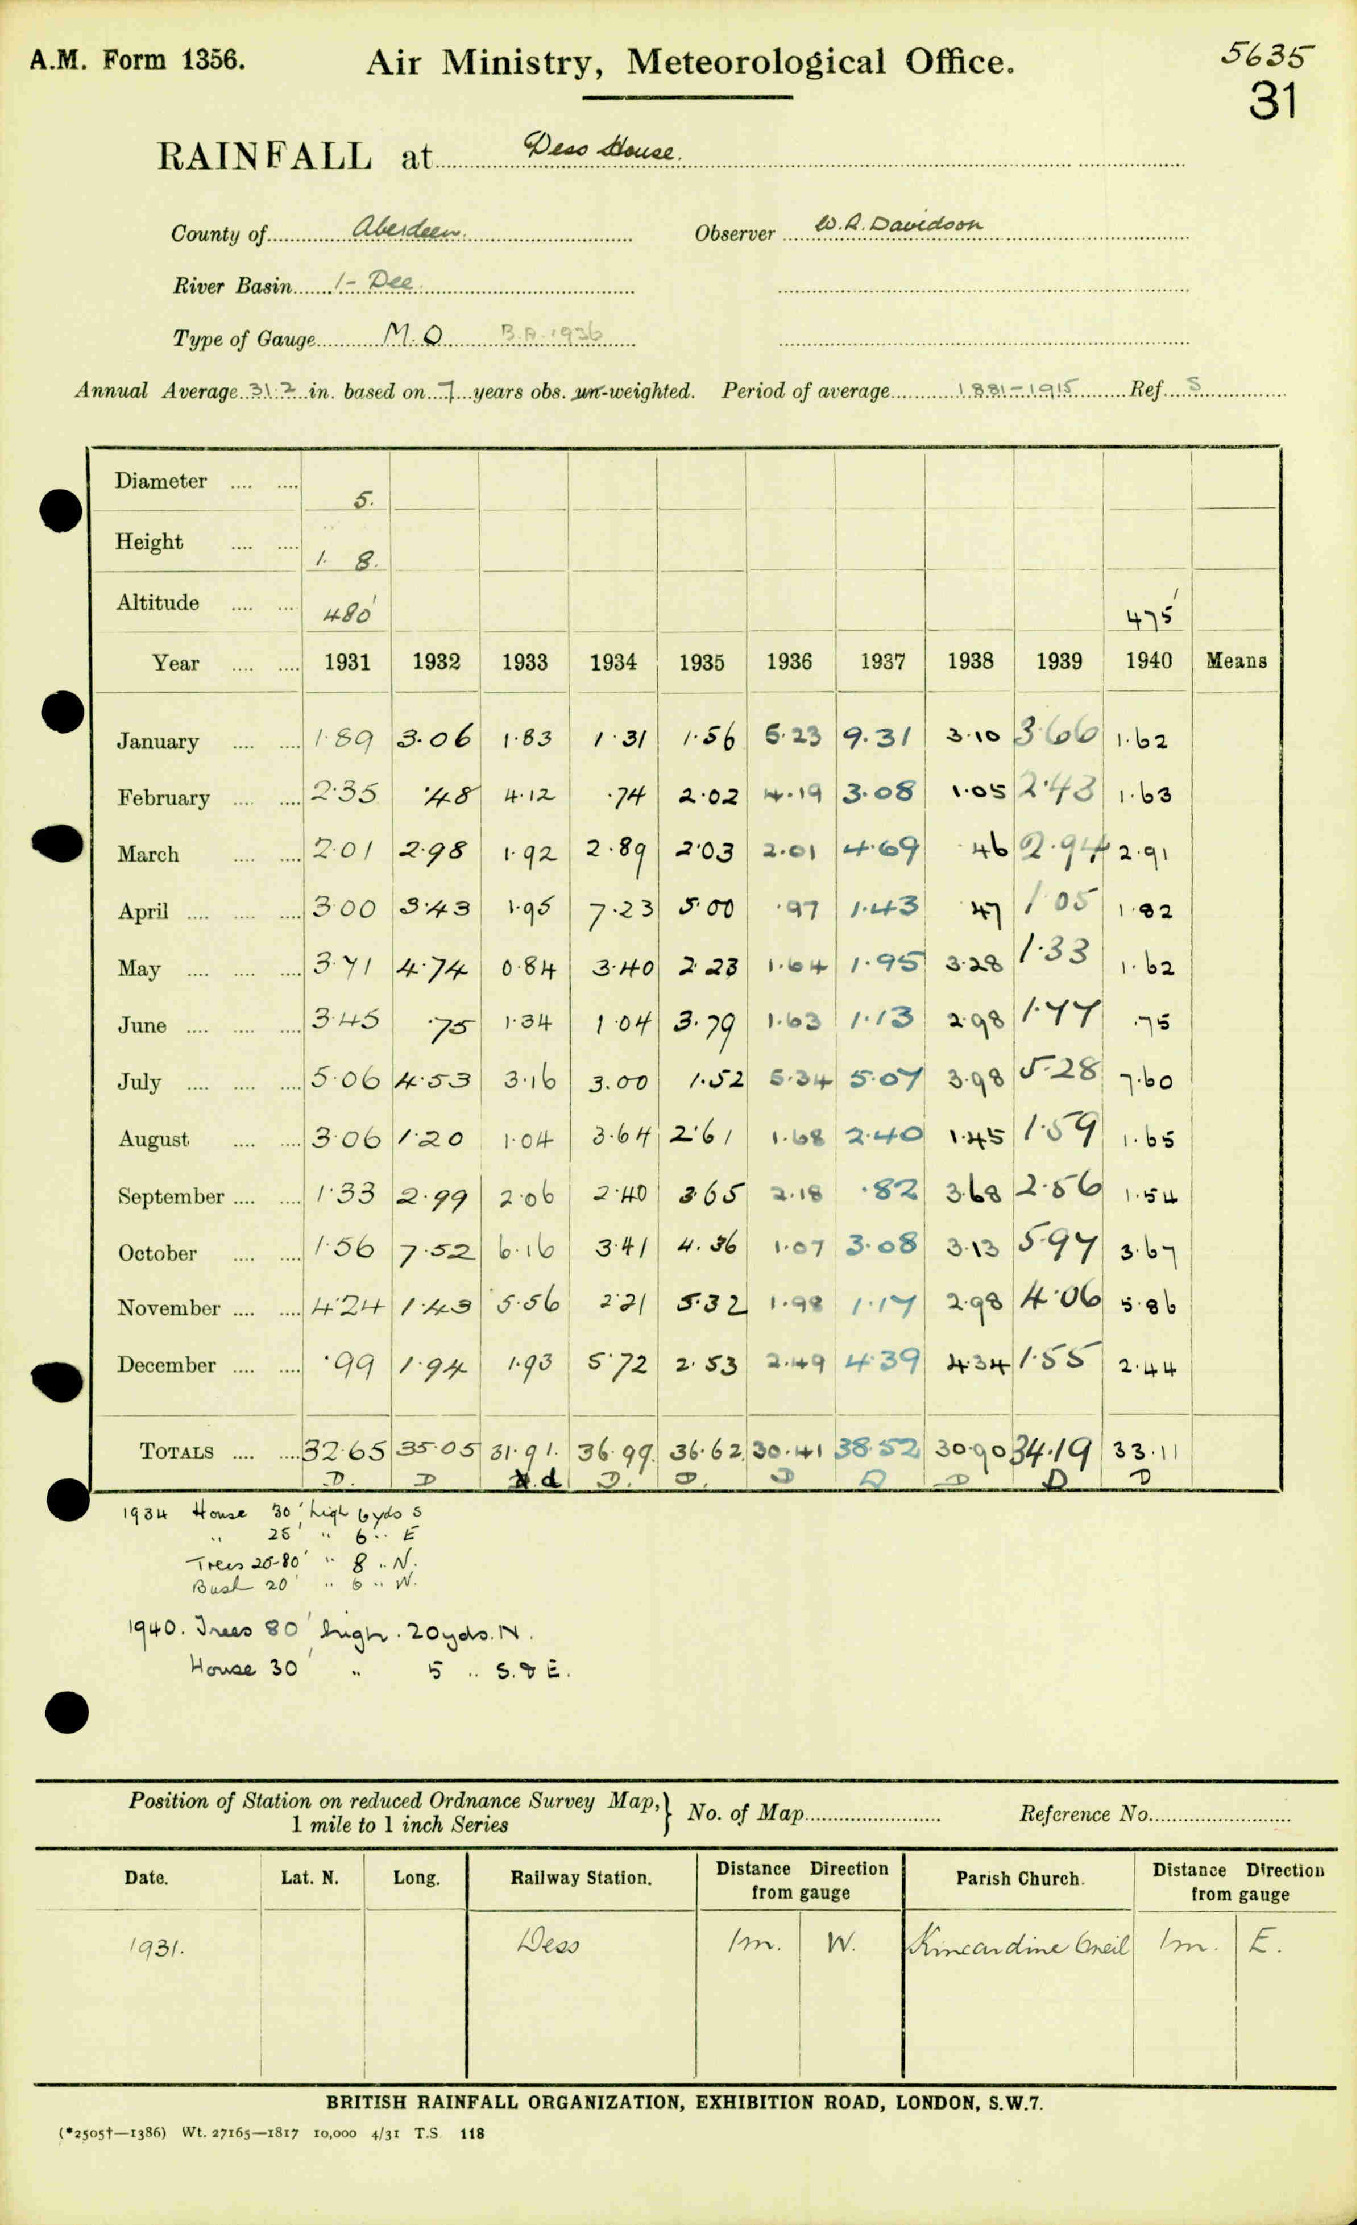 A.M. Form 1356. Air Ministry, Meteorological Office. 5635
31
RAINFALL at Dess House.
County of Aberdeen. Observer W.A. Davidson
River Basin 1- Dee
Type of Gauge M.O B.A. 1936
Annual Average 31.2 in. based on 7 years obs. un-weighted. Period of average 1881-1915 Ref. S
Diameter 5.
Height 1. 8.
Altitude 480' 475'
Year 1931 1932 1933 1934 1935 1936 1937 1938 1939 1940 Means
January 1.89 3.06 1.83 1.31 1.56 5.23 9.31 3.10 3.66 1.62
February 2.35 .48 4.12 .74 2.02 4.19 3.08 1.05 2.43 1.63
March 2.01 2.98 1.92 2.89 2.03 2.01 4.69 .46 2.94 2.91
April 3.00 3.43 1.95 7.23 5.00 .97 1.43 .47 1.05 1.82
May 3.71 4.74 0.84 3.40 2.23 1.64 1.95 3.28 1.33 1.62
June 3.45 .75 1.34 1.04 3.79 1.63 1.13 2.98 1.77 .75
July 5.06 4.53 3.16 3.00 1.52 5.34 5.07 3.98 5.28 7.60
August 3.06 1.20 1.04 3.64 2.61 1.68 2.40 1.45 1.59 1.65
September 1.33 2.99 2.06 2.40 3.65 2.18 .82 3.68 2.56 1.54
October 1.56 7.52 6.16 3.41 4.36 1.07 3.08 3.13 5.97 3.67
November 4.24 1.43 5.56 2.21 5.32 1.98 1.17 2.98 4.06 5.86
December .99 1.94 1.93 5.72 2.53 2.49 4.39 4.34 1.55 2.44
TOTALS 32.65 35.05 31.91. 36.99. 36.62 30.41 38.52 30.90 34.19 33.11
D. D d D. D. D D D D D
1934 House 30' high 6 yds S
" 25' " 6 " E
Trees 25-80' " 8 " N.
Bush 20' " 6 " W.
1940. Trees 80' high. 20yds. N.
House 30' " 5 " S. & E.
Position of Station on reduced Ordnance Survey Map, 1 mile to 1 inch Series } No. of Map Reference No.
Date. Lat. N. Long. Railway Station. Distance Direction from gauge Parish Church. Distance Direction from gauge
1931. Dess 1m. W. Kincardine Oneil 1m. E.
BRITISH RAINFALL ORGANIZATION, EXHIBITION ROAD, LONDON, S.W.7.
(*2505†—1386) Wt. 27165—1817 10,000 4/31 T.S. 118